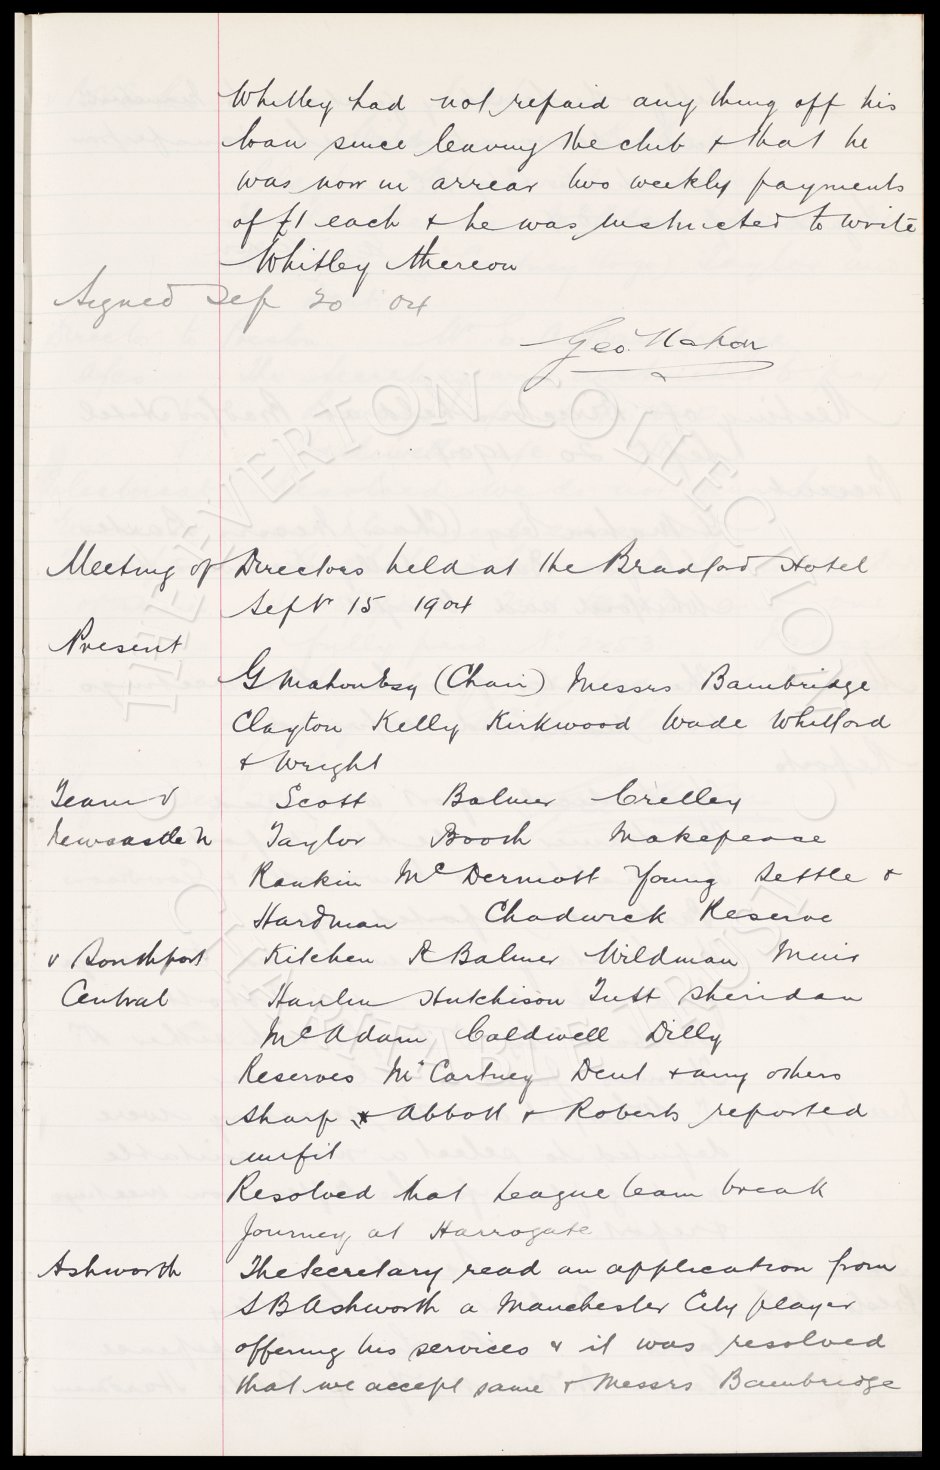 Whitley had not repaid any thing off his
loan since leaving the club & that he
was now in arrear two weekly payments
of £1 each & he was instructed to write
Whitley thereon
Signed Sep 20 04
Geo. Mahon
THE EVERTON COLLECTION
Meeting of Directors held at the Bradford Hotel
Sept 15 1904
Present
G Mahon Esq (Chair) Messrs Bainbridge
Clayton Kelly Kirkwood Wade Whitford
& Wright
Team v Scott Balmer Crelley
Newcastle U Taylor Booth Makepeace
Rankin McDermott Young Settle &
Hardman Chadwick Reserve
v Southport Kitchen R Balmer Wildman Muir
Central Hanlin Hutchison Tuft Sheridan
McAdam Caldwell Dilly
Reserves McCartney Dent & any others
Sharp & Abbott & Roberts reported
unfit
Resolved that League team break
Journey at Harrogate
Ashworth The Secretary read an application from
S B Ashworth a Manchester City player
offering his services & it was resolved
that we accept same & Messrs Bainbridge